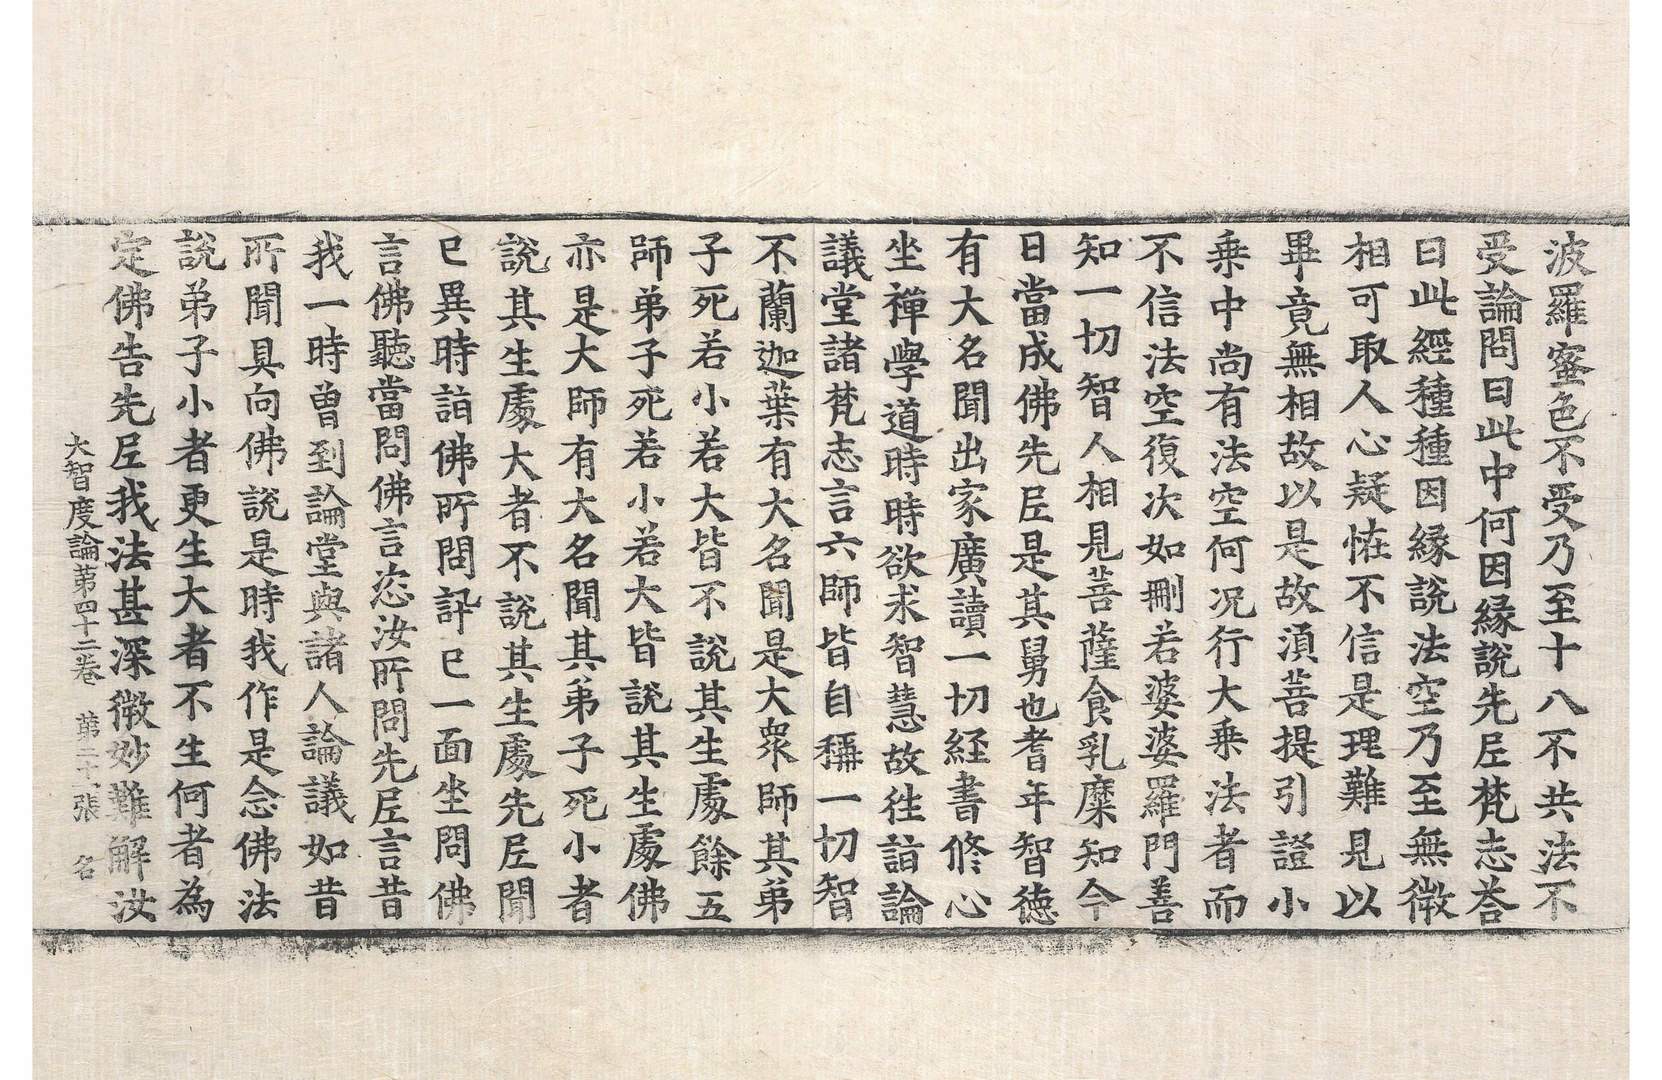 波羅蜜色不受乃至十八不共法不
受論問曰此中何因緣說先𡰱梵志荅
曰此經種種因緣說法空乃至無微
相可取人心疑恠不信是理難見以
畢竟無相故以是故湏菩提引證小
乗中尚有法空何況行大乗法者而
不信法空復次如刪若婆婆羅門善
知一切智人相見菩薩食乳糜知今
日當成佛先𡰱是其舅也耆年智德
有大名聞出家廣讀一切経書修心
坐禪學道時時欲求智慧故往詣論
議堂諸梵志言六師皆自稱一切智
不蘭迦葉有大名聞是大衆師其弟
子死若小若大皆不說其生處餘五
師弟子死若小若大皆說其生處佛
亦是大師有大名聞其弟子死小者
說其生處大者不說其生處先𡰱聞
已異時詣佛所問訊已一面坐問佛
言佛聽當問佛言恣汝所問先𡰱言昔
我一時曾到論堂與諸人論議如昔
所聞具向佛說是時我作是念佛法
說弟子小者更生大者不生何者為
定佛告先𡰱我法甚深微妙難解汝
大智度論第四十二卷 第二十一張 名